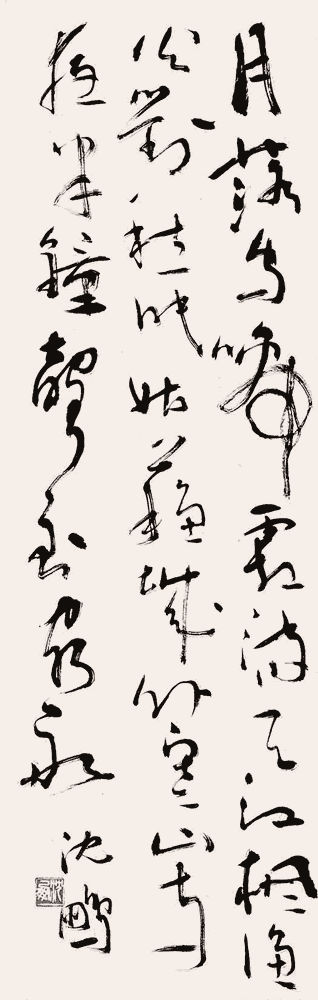 月落烏啼霜滿天江楓漁
火對愁眠姑蘇城外寒山寺
夜半鐘聲到客船
沈鵬